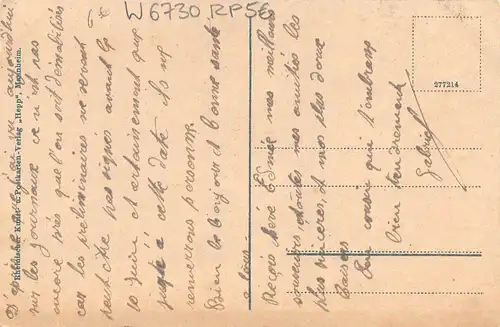 W6730 RP56
277214
Rheinischer Kunst- u. Postkarten-Verlag „Hepp", Mannheim.
D'après ce que j'ai vu aujourd'hui
sur les journaux ce n'est pas
encore près que l'on soit démobilisés
car les préliminaires ne seront
peut être pas signés avant le
10 juin et certainement que
jusqu'à cette date ils ne
remueront personne.
Bien le bonjour et bonne santé
à tous.
Reçois chère Edmée mes meilleurs
souvenirs, toutes mes amitiés les
plus sincères, et mes plus doux
Baisers
Ton cousin qui t'embrasse
bien tendrement
Gabriel